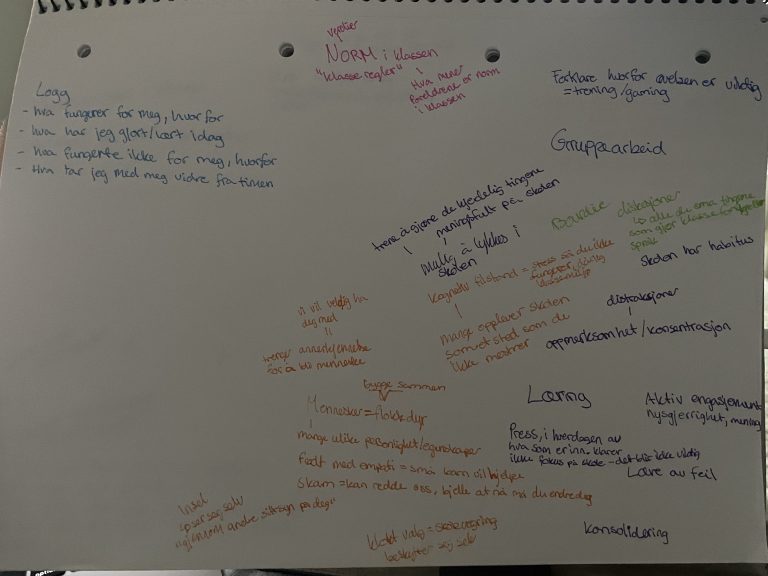 verdier
NORM i klassen
"klasse regler"
Hva mener
foreldrene er norm
i klassen
Forklare hvorfor øvelsen er viktig
= trening/gaming
Logg
- hva fungerer for meg, hvorfor
- hva har jeg gjort/lært i dag
- hva fungerte ikke for meg, hvorfor
- Hva tar jeg med meg vidre fra timen
Gruppearbeid
trene å gjøre de kjedelig tingene
meningsfult på skolen
mulig å lykkes i
skolen
Bourdie
diskusjoner
alle de små tingene
som gjør klasse
språk
skolen har habitus
Kognetiv tilstand = stress så du ikke
fungerer, dårlig
klassemiljø
mange opplever skolen
som et sted som de
ikke mestrer
distraksjoner
oppmerksomhet/konsentrasjon
vi vil veldig ha
deg med
trenger annerkjennelse
for å bli menneske
bygge sammen
Mennesker = flokkdyr
mange ulike personlighet/egenskaper
født med empati = små barn vil hjelpe
skam = kan redde oss, bjelle at nå må du endre deg
Læring
Aktiv engasjement
nysgjerrighet, mening
Press, i hverdagen av
hva som er inn, klærer
ikke fokus på skole - det blir ikke viktig
Lære av feil
speiler seg selv
"gjennom andre sitt syn på deg"
valg = skolevegring
beskytter seg selv
konsolidering